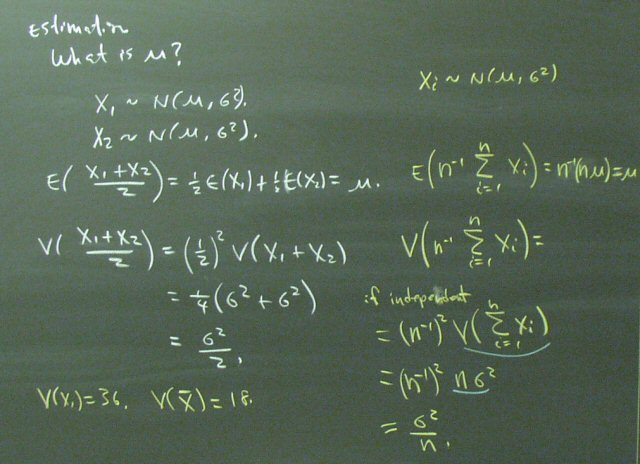 Estimation
What is μ?
X₁ ~ N(μ, σ²).
X₂ ~ N(μ, σ²).
E( (X₁+X₂)/2 ) = ½ E(X₁) + ½ E(X₂) = μ.
V( (X₁+X₂)/2 ) = (½)² V(X₁ + X₂)
= ¼(σ² + σ²)
= σ²/2,
V(X₁)=36. V(X̄)=18.
Xᵢ ~ N(μ, σ²)
E(n⁻¹ ∑ᵢ₌₁ⁿ Xᵢ) = n⁻¹(nμ)=μ
V(n⁻¹ ∑ᵢ₌₁ⁿ Xᵢ)=
if independent
= (n⁻¹)² V(∑ᵢ₌₁ⁿ Xᵢ)
= (n⁻¹)² nσ²
= σ²/n.